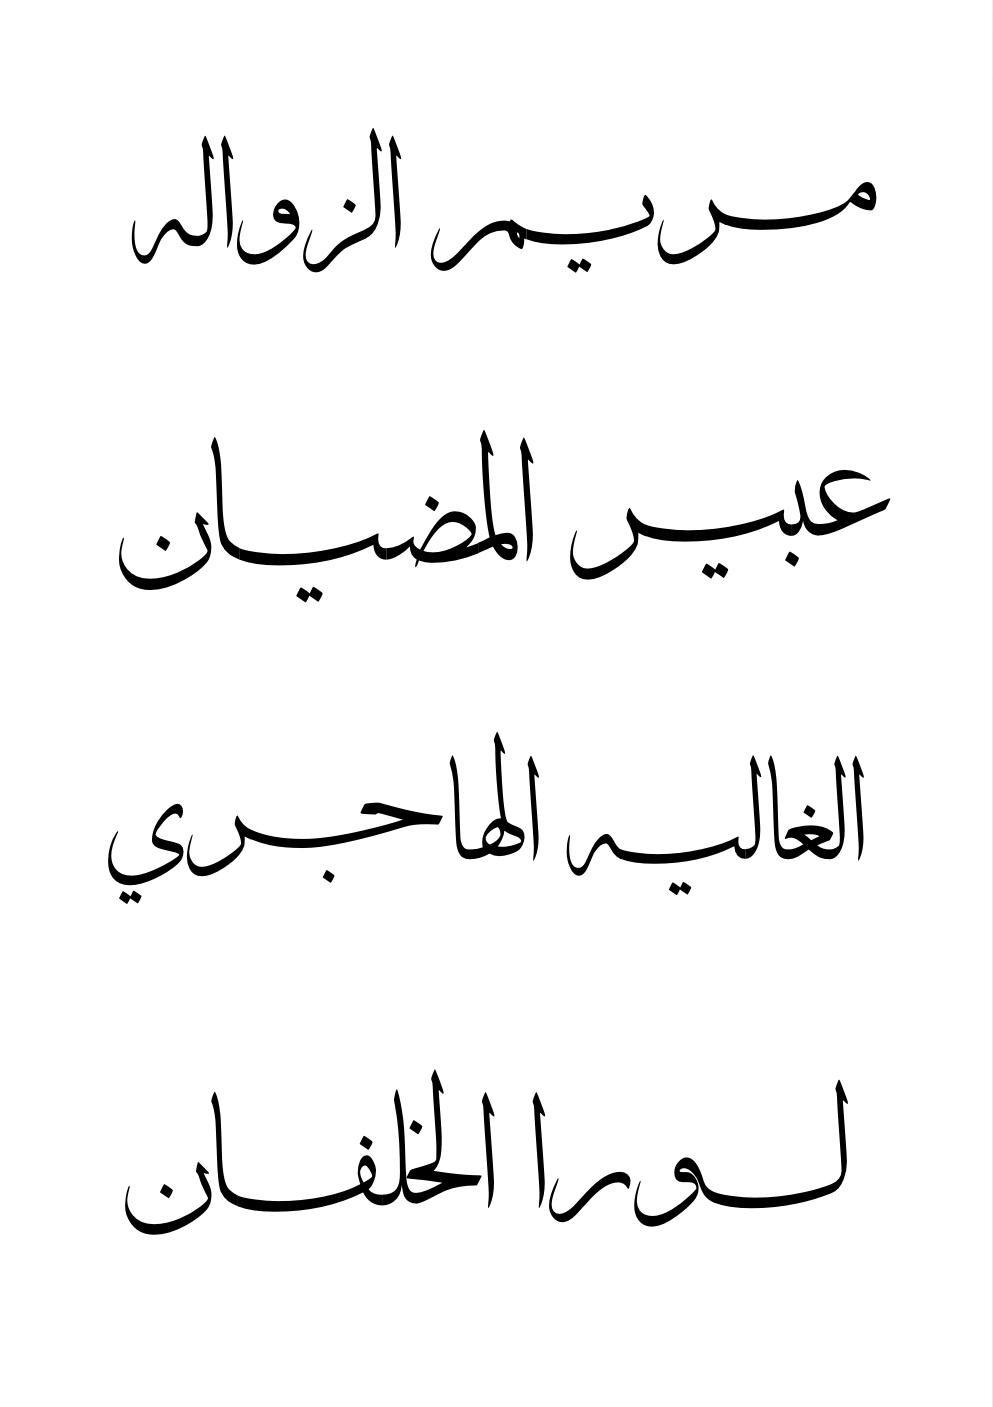 مريم الزواله
عبير المضيان
الغاليه الهاجري
لورا الخلفان